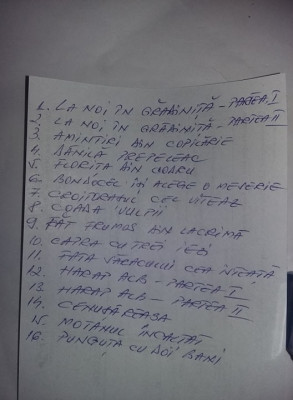 1. LA NOI ÎN GRĂDINIȚĂ - PARTEA I
2. LA NOI ÎN GRĂDINIȚĂ - PARTEA II
3. AMINTIRI DIN COPILĂRIE
4. DĂNILĂ PREPELEAC
5. FLORIȚA DIN CODRU
6. BONDOCEL ÎȘI ALEGE O MESERIE
7. CROITORAȘUL CEL VITEAZ
8. COADA VULPII
9. FĂT FRUMOS DIN LACRIMĂ
10. CAPRA CU TREI IEZI
11. FATA SĂRACULUI CEA ISTEAȚĂ
12. HARAP ALB - PARTEA I
13. HARAP ALB - PARTEA II
14. CENUȘĂREASA
15. MOTANUL ÎNCĂLȚAT
16. PUNGUȚA CU DOI BANI